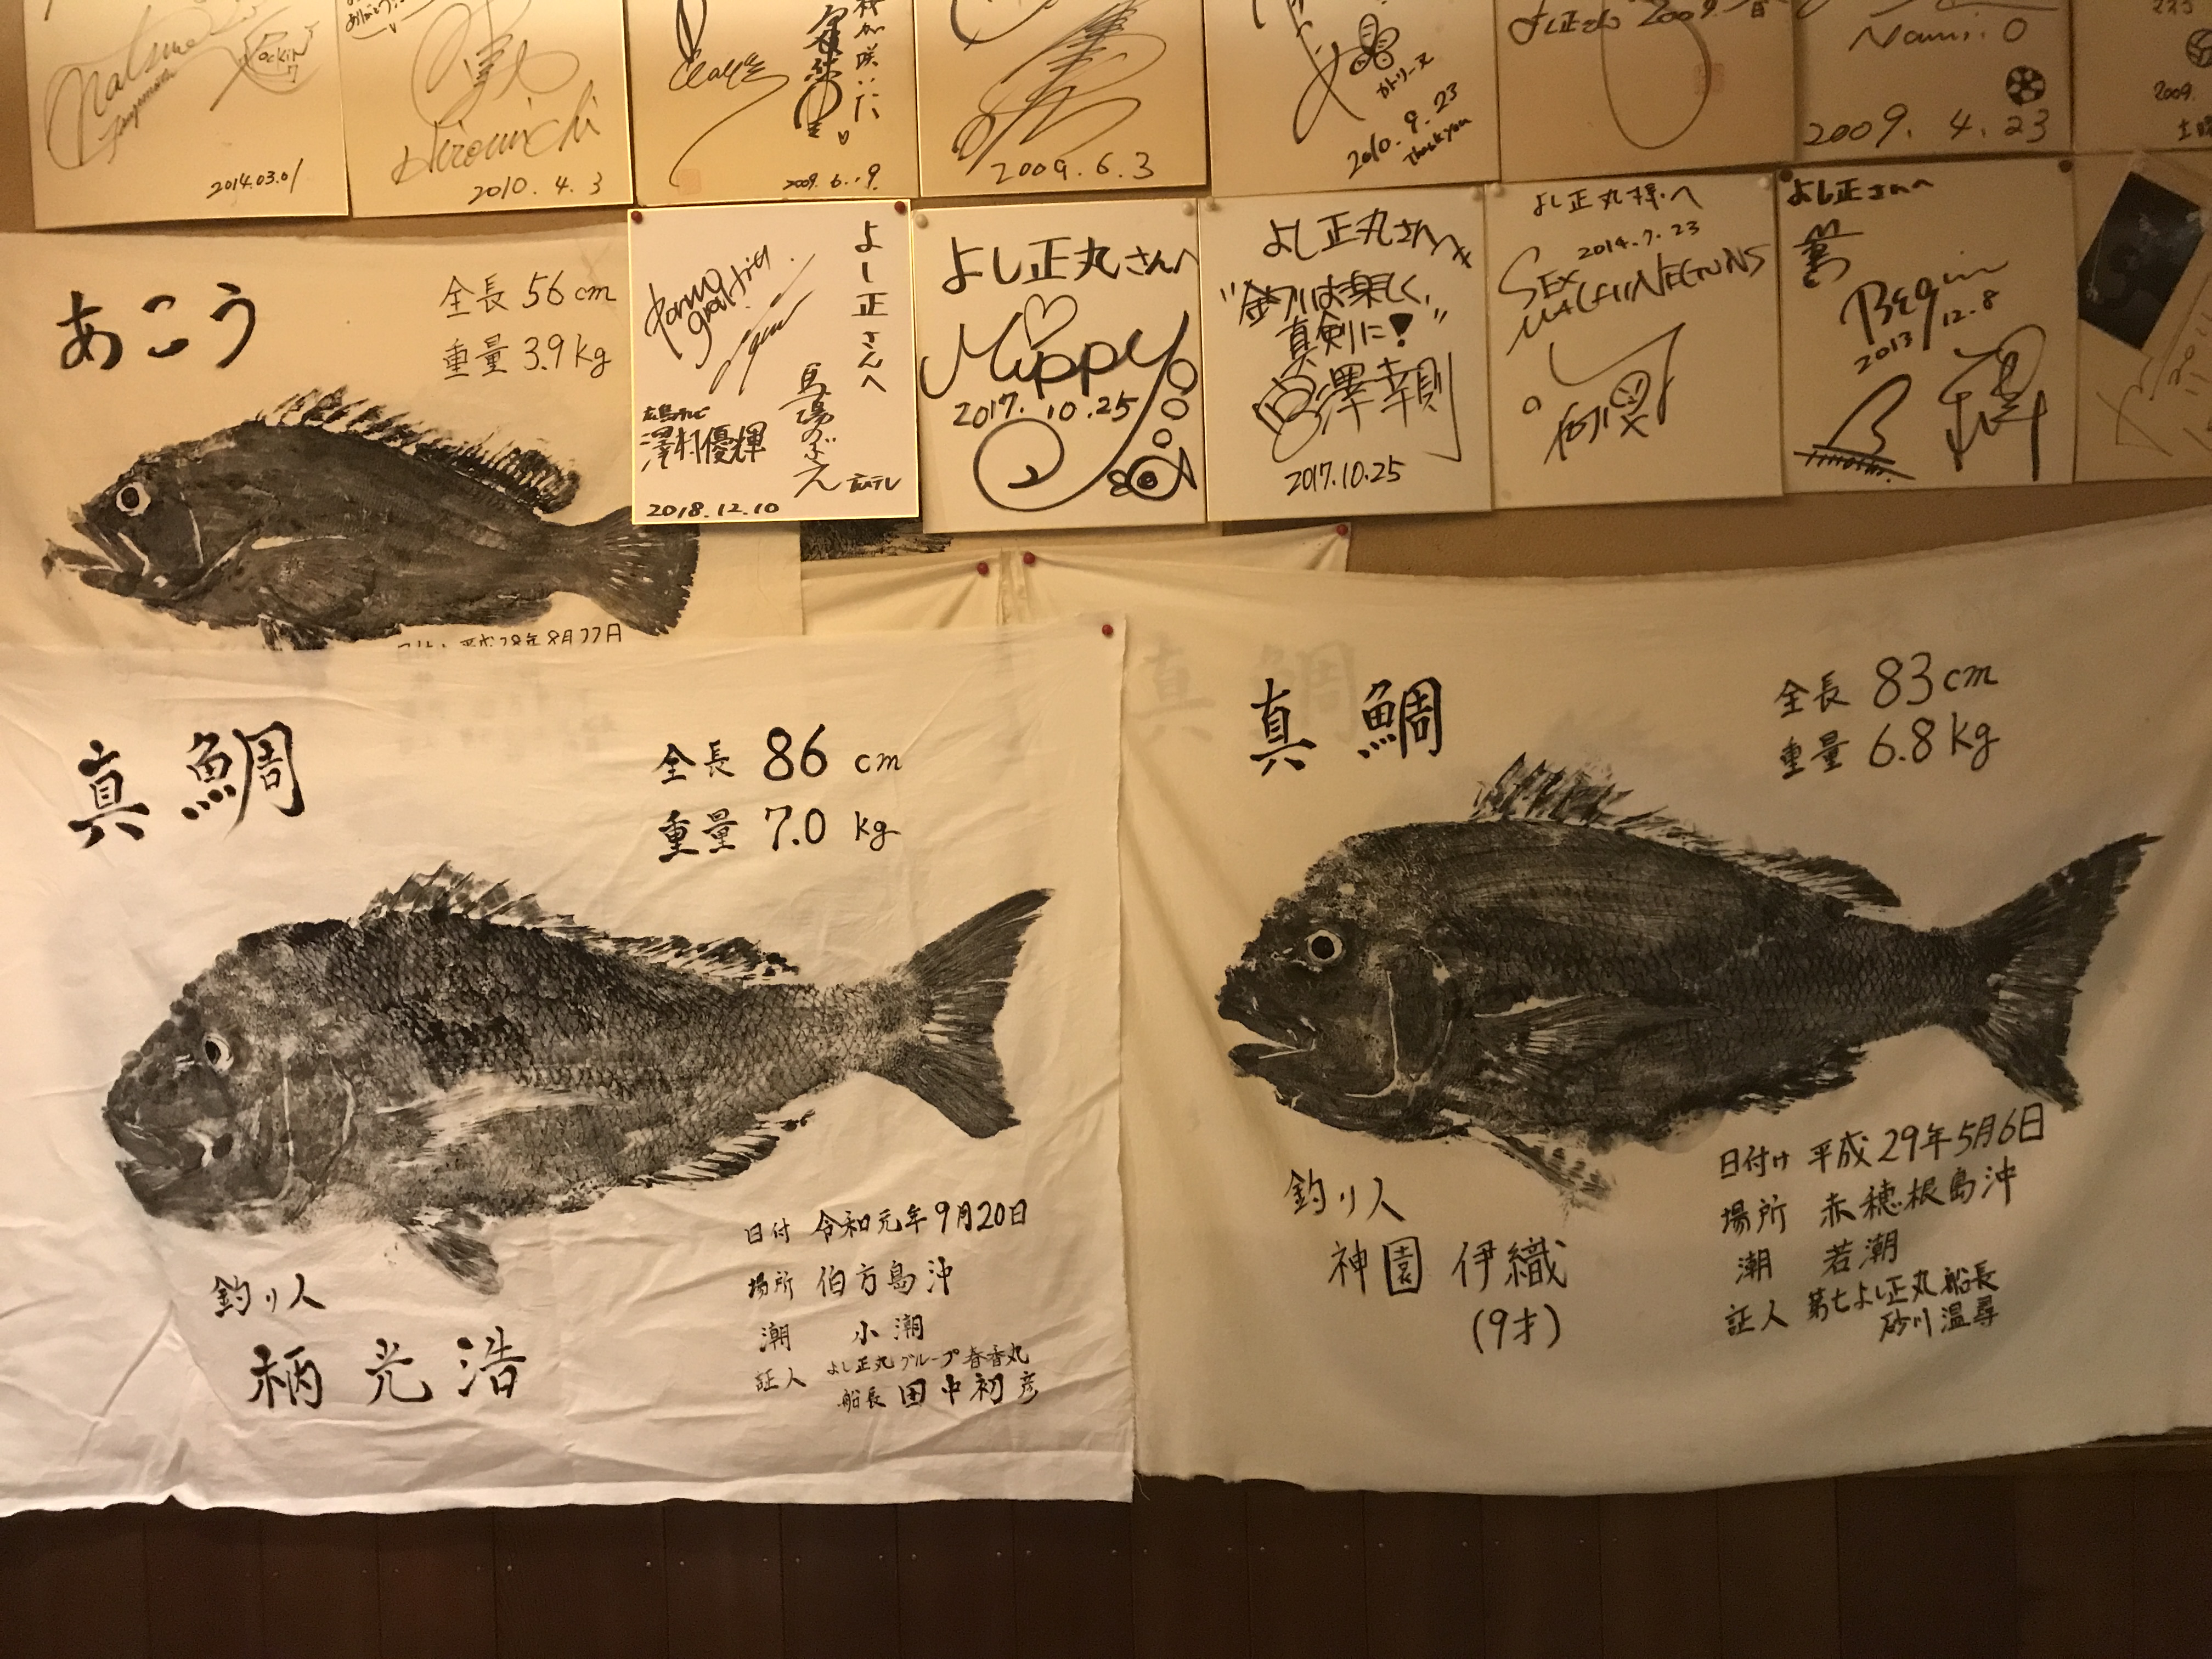 2014.03.01
Hiromichi
2010.4.3
2009.6.9.
2009.6.3
カトリーヌ
2010.9.23
Thank you
よし正さん 2009.
Nami.O
2009.4.23
2009.
よし正さんへ
馬場のぶえ
広テレ
広島テレビ
澤村優輝
2018.12.10
よし正丸さんへ
Mippy
2017.10.25
よし正丸さんへ
"釣りは楽しく,
真剣に!"
宮澤幸則
2017.10.25
よし正丸様へ
2014.7.23
SEX
MACHINEGUNS
よし正さんへ
Begin
2013 12.8
あこう
全長 56cm
重量 3.9kg
平成28年8月
真鯛
全長 86 cm
重量 7.0 kg
釣り人
柄 光浩
日付 令和元年9月20日
場所 伯方島沖
潮 小潮
証人 よし正丸グループ春香丸
船長 田中初彦
真鯛
真鯛
全長 83cm
重量 6.8kg
釣り人
神園 伊織
(9才)
日付け 平成29年5月6日
場所 赤穂根島沖
潮 若潮
証人 第七よし正丸船長
砂川温尋